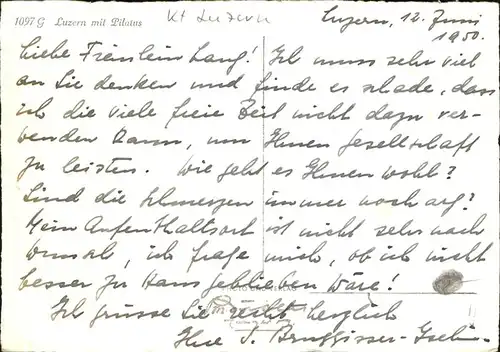 1097 G Luzern mit Pilatus
Kt Luzern
Luzern, 12. Juni
1950.
Liebe Fräulein Lang! Ich muss sehr viel
an Sie denken und finde es schade, dass
ich die viele freie Zeit nicht dazu ver-
wenden kann, um Ihnen Gesellschaft
zu leisten. Wie geht es Ihnen wohl?
Sind die Schmerzen immer noch arg?
Mein Aufenthaltsort ist nicht sehr nach
Wunsch, ich frage mich, ob ich nicht
besser zu Haus geblieben wäre!
Ich grüsse Sie recht herzlich
Ihre S. Bruggisser-